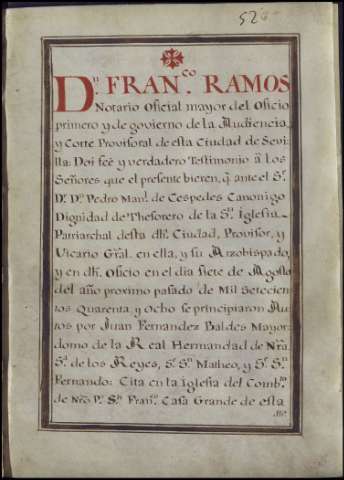 52
Dn. FRAN.co RAMOS
Notario Oficial mayor del Oficio
primero y de govierno de la Audiencia,
y Corte Provisoral de esta Ciudad de Sevi-
lla: Doi feè y verdadero Testimonio à los
Señores que el presente bieren, q̃. ante el Sr.
Dr. Dn. Pedro Manl. de Cespedes Canonigo
Dignidad de Thesorero de la Sta. Iglesia
Patriarchal desta dha. Ciudad, Provisor, y
Vicario Gral. en ella, y su Arzobispado,
y en dho. Oficio en el dia siete de Agosto
del año proximo pasado de Mil Setecien-
tos Quarenta, y Ocho se principiaron Au-
tos por Juan Fernandez Baldes Mayor-
domo de la Real Hermandad de Nra.
Sa. de los Reyes, Sr. Sn. Matheo, y Sr. Sn.
Fernando: Cita en la Iglesia del Combto.
de Nro. Pe. Sn. Frano. Casa Grande de esta
dha.